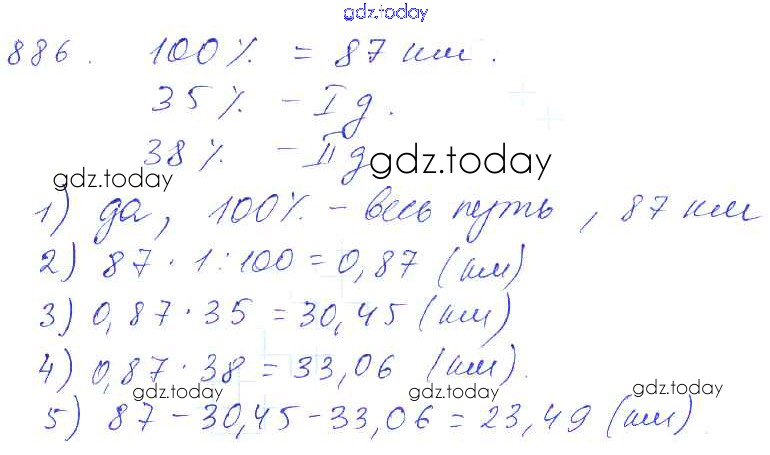 gdz.today
886. 100% = 87 км.
35% – I д.
38% – II д
gdz.today
gdz.today
1) да, 100% – весь путь, 87 км
2) 87 · 1 : 100 = 0,87 (км)
3) 0,87 · 35 = 30,45 (км)
4) 0,87 · 38 = 33,06 (км).
gdz.today
gdz.today
gdz.today
5) 87 – 30,45 – 33,06 = 23,49 (км)